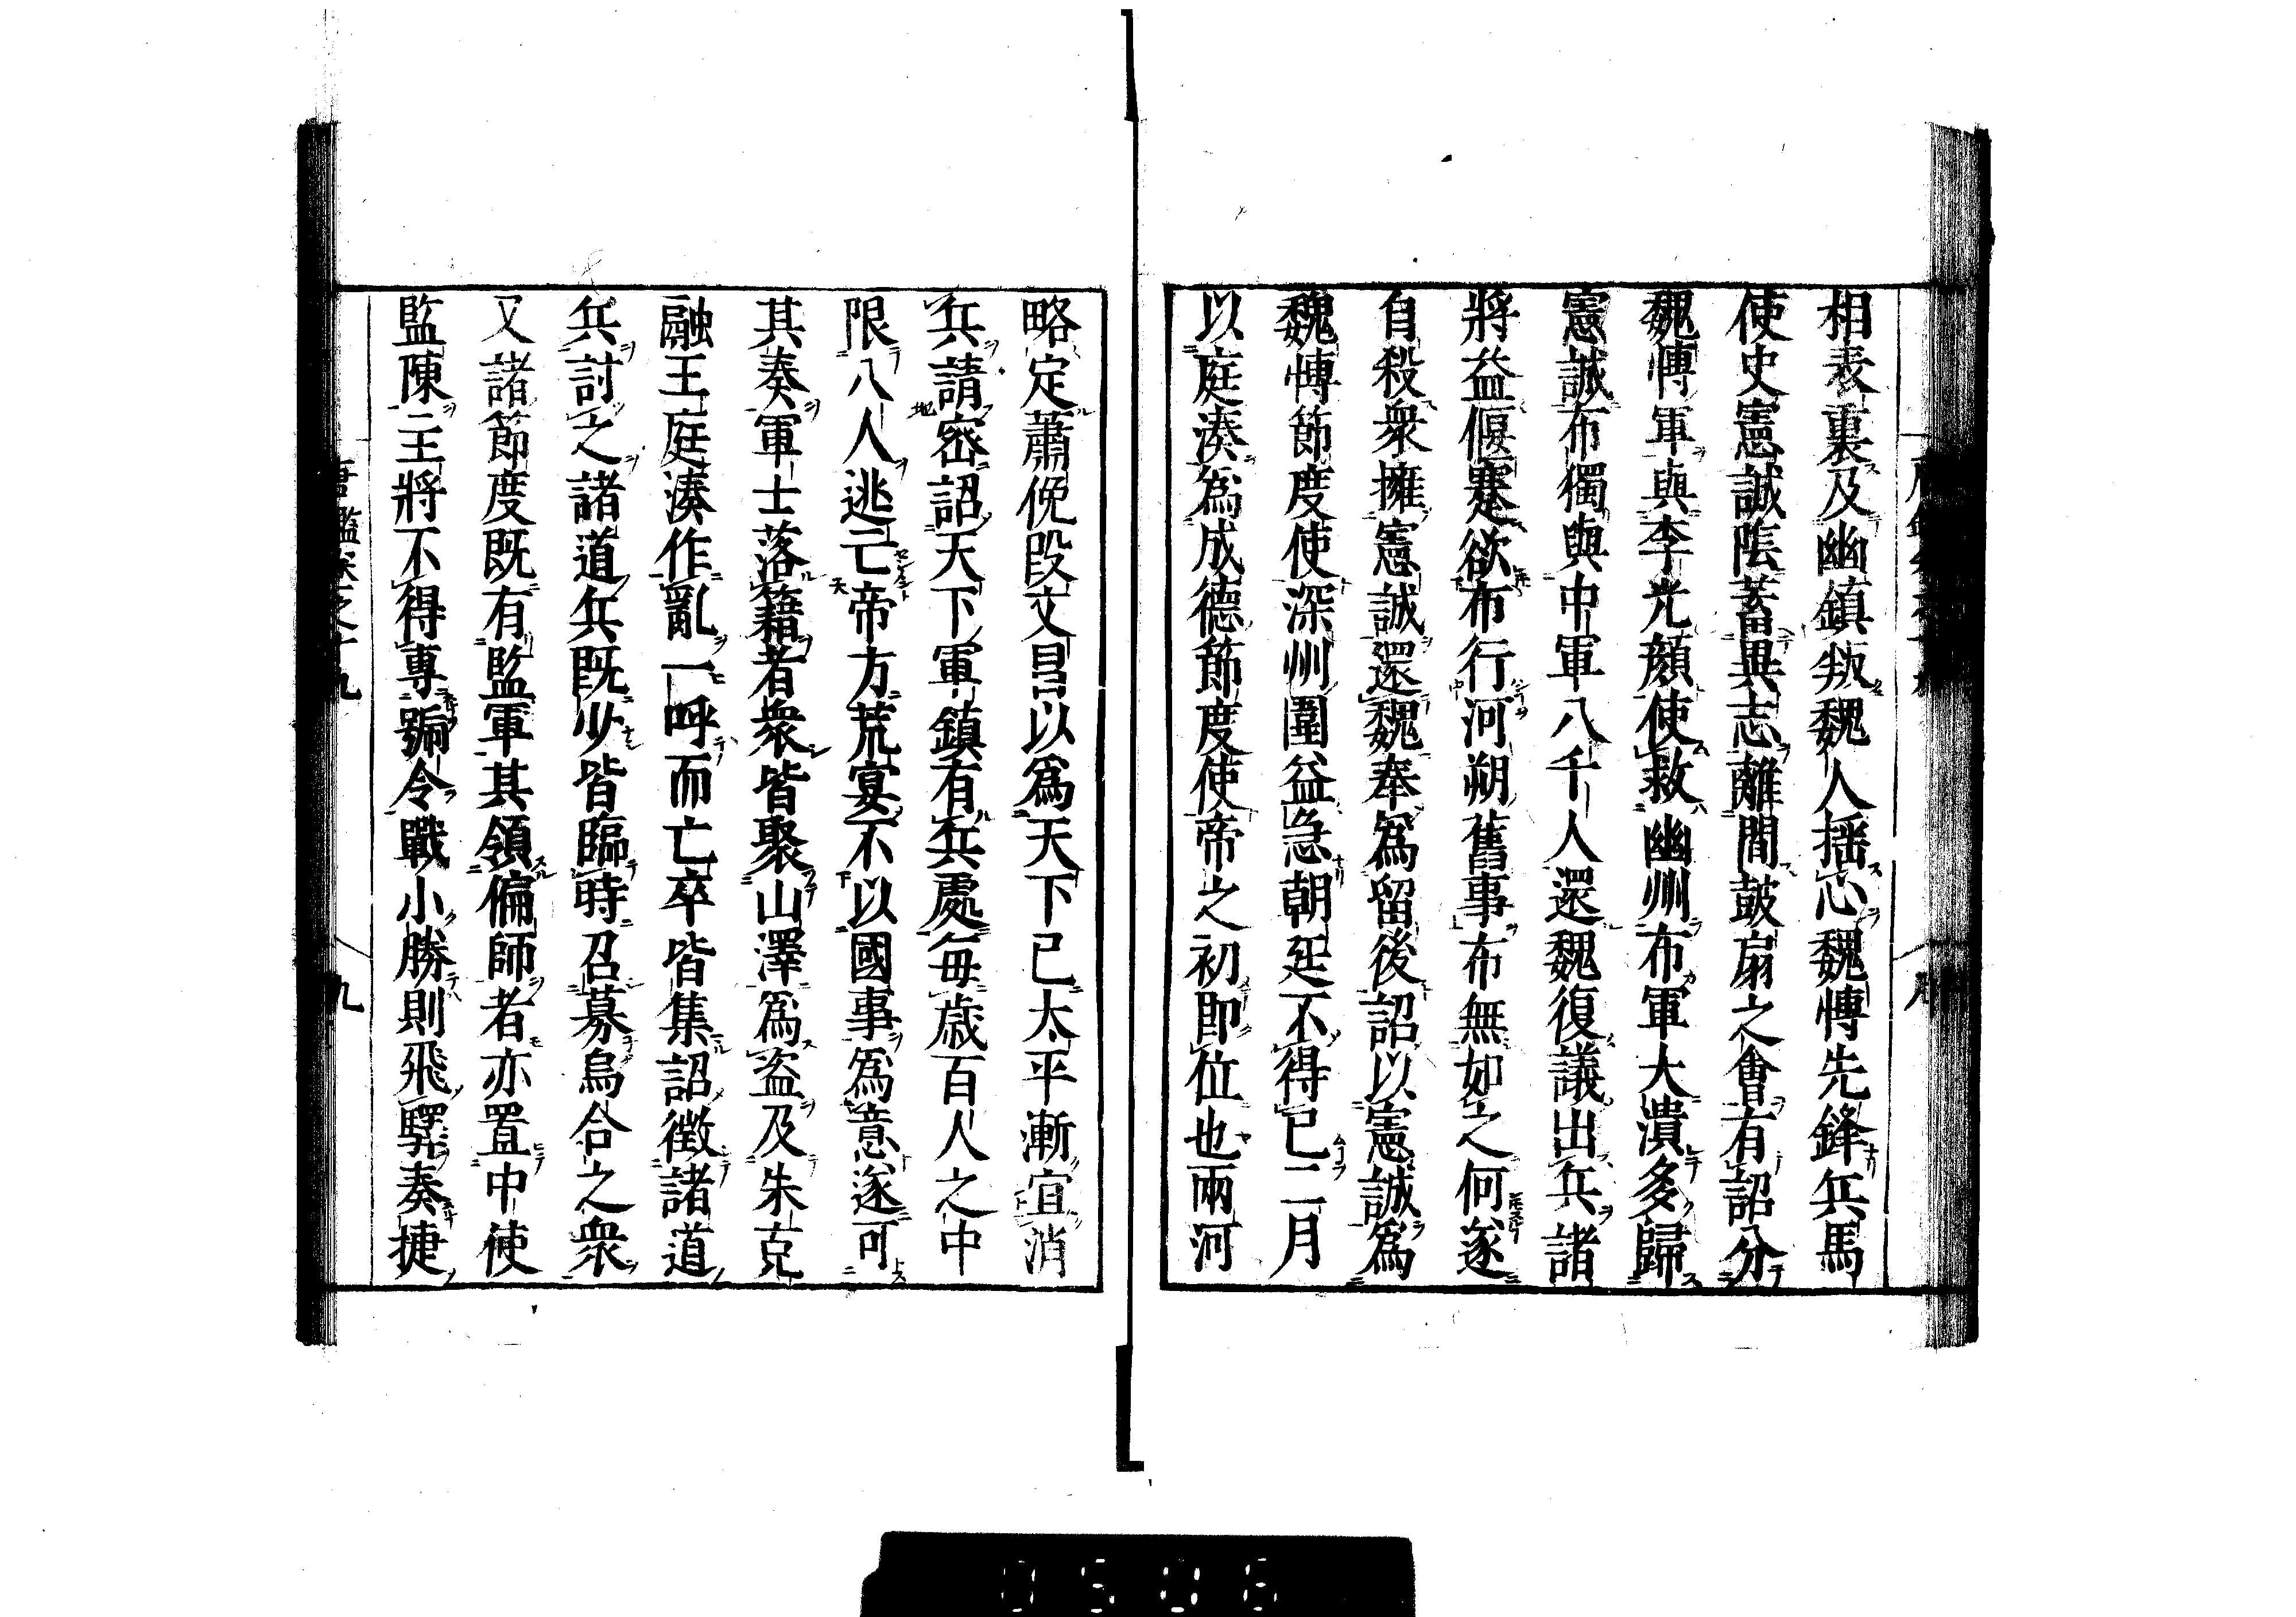 相表裏及幽鎮叛魏人揺心魏愽先鋒兵馬
使史憲誠陰蓄異志離間鼓扇之會有詔分
魏愽軍與李光顔使救幽州布軍大潰多歸
憲誠布獨與中軍八千人還魏復議出兵諸
將益偃蹇欲布行河朔舊事布無如之何遂
自殺衆擁憲誠還魏奉爲留後詔以憲誠爲
魏愽節度使深州圍益急朝廷不得已二月
以庭湊爲成德節度使帝之初即位也兩河
略定蕭俛段文昌以爲天下已太平漸宜消
兵請宻詔天下軍鎮有兵處毎歳百人之中
限八人逃亡帝方荒宴不以國事爲意遂可
其奏軍士落籍者衆皆聚山澤爲盗及朱克
融王庭湊作亂一呼而亡卒皆集詔徴諸道
兵討之諸道兵既少皆臨時召募烏合之衆
又諸節度既有監軍其領偏師者亦置中使
監陳主將不得專號令戰小勝則飛驛奏捷
唐鑑卷之十九
九